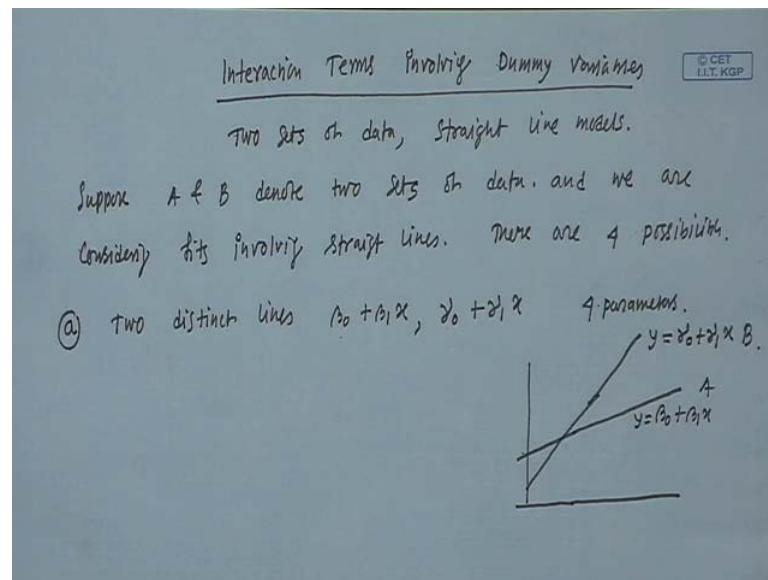 Interaction Terms Involvig Dummy Variables
© CET
I.I.T. KGP
Two sets of data, straight line models.
Suppose A & B denote two sets of data. and we are
Considerig fits involvig straigt lines. There are 4 possibilities.
(a) Two distinct lines β₀ + β₁x, γ₀ + γ₁x 4 parameters.
y = γ₀ + γ₁x B.
A
y = β₀ + β₁x